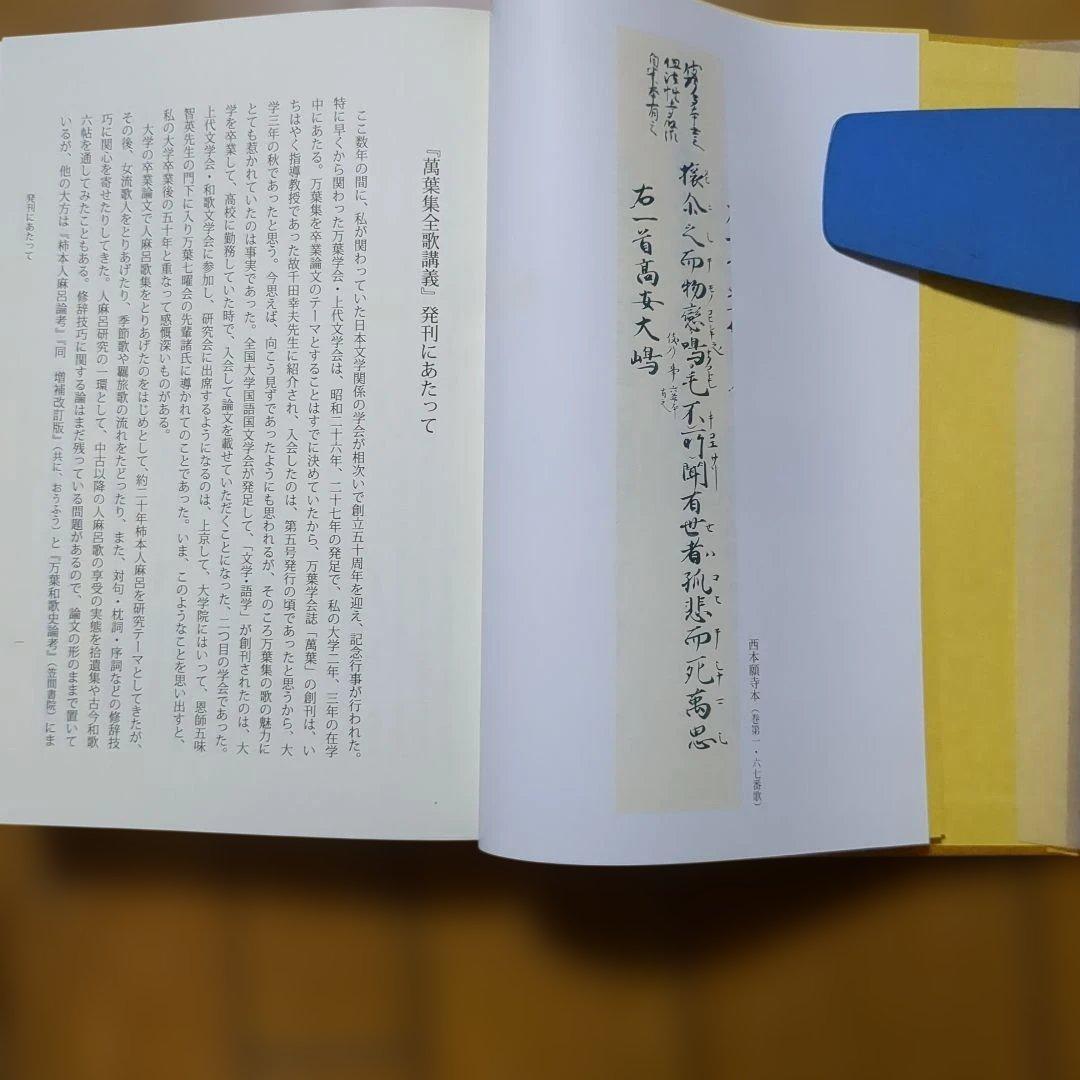 旅尓之而物戀鳴毛不所聞有世者孤悲而死萬思
右一首高安大嶋
西本願寺本(巻第一・六七番歌)
『萬葉集全歌講義』発刊にあたって
ここ数年の間に、私が関わっていた日本文学関係の学会が相次いで創立五十周年を迎え、記念行事が行われた。
特に早くから関わった万葉学会・上代文学会は、昭和二十六年、二十七年の発足で、私の大学二年、三年の在学
中にあたる。万葉集を卒業論文のテーマとすることはすでに決めていたから、万葉学会誌「萬葉」の創刊は、い
ちはやく指導教授であった故千田幸夫先生に紹介され、入会したのは、第五号発行の頃であったと思うから、大
学三年の秋であったと思う。今思えば、向こう見ずであったようにも思われるが、そのころ万葉集の歌の魅力に
とても惹かれていたのは事実であった。全国大学国語国文学会が発足して、「文学・語学」が創刊されたのは、大
学を卒業して、高校に勤務していた時で、入会して論文を載せていただくことになった、二つ目の学会であった。
上代文学会・和歌文学会に参加し、研究会に出席するようになるのは、上京して、大学院にはいって、恩師五味
智英先生の門下に入り万葉七曜会の先輩諸氏に導かれてのことであった。いま、このようなことを思い出すと、
私の大学卒業後の五十年と重なって感慨深いものがある。
大学の卒業論文で人麻呂歌集をとりあげたのをはじめとして、約二十年柿本人麻呂を研究テーマとしてきたが、
その後、女流歌人をとりあげたり、季節歌や羈旅歌の流れをたどったり、また、対句・枕詞・序詞などの修辞技
巧に関心を寄せたりしてきた。人麻呂研究の一環として、中古以降の人麻呂歌の享受の実態を拾遺集や古今和歌
六帖を通してみたこともある。修辞技巧に関する論はまだ残っている問題があるので、論文の形のままで置いて
いるが、他の大方は『柿本人麻呂論考』『同 増補改訂版』(共に、おうふう)と『万葉和歌史論考』(笠間書院)にま
発刊にあたって
一